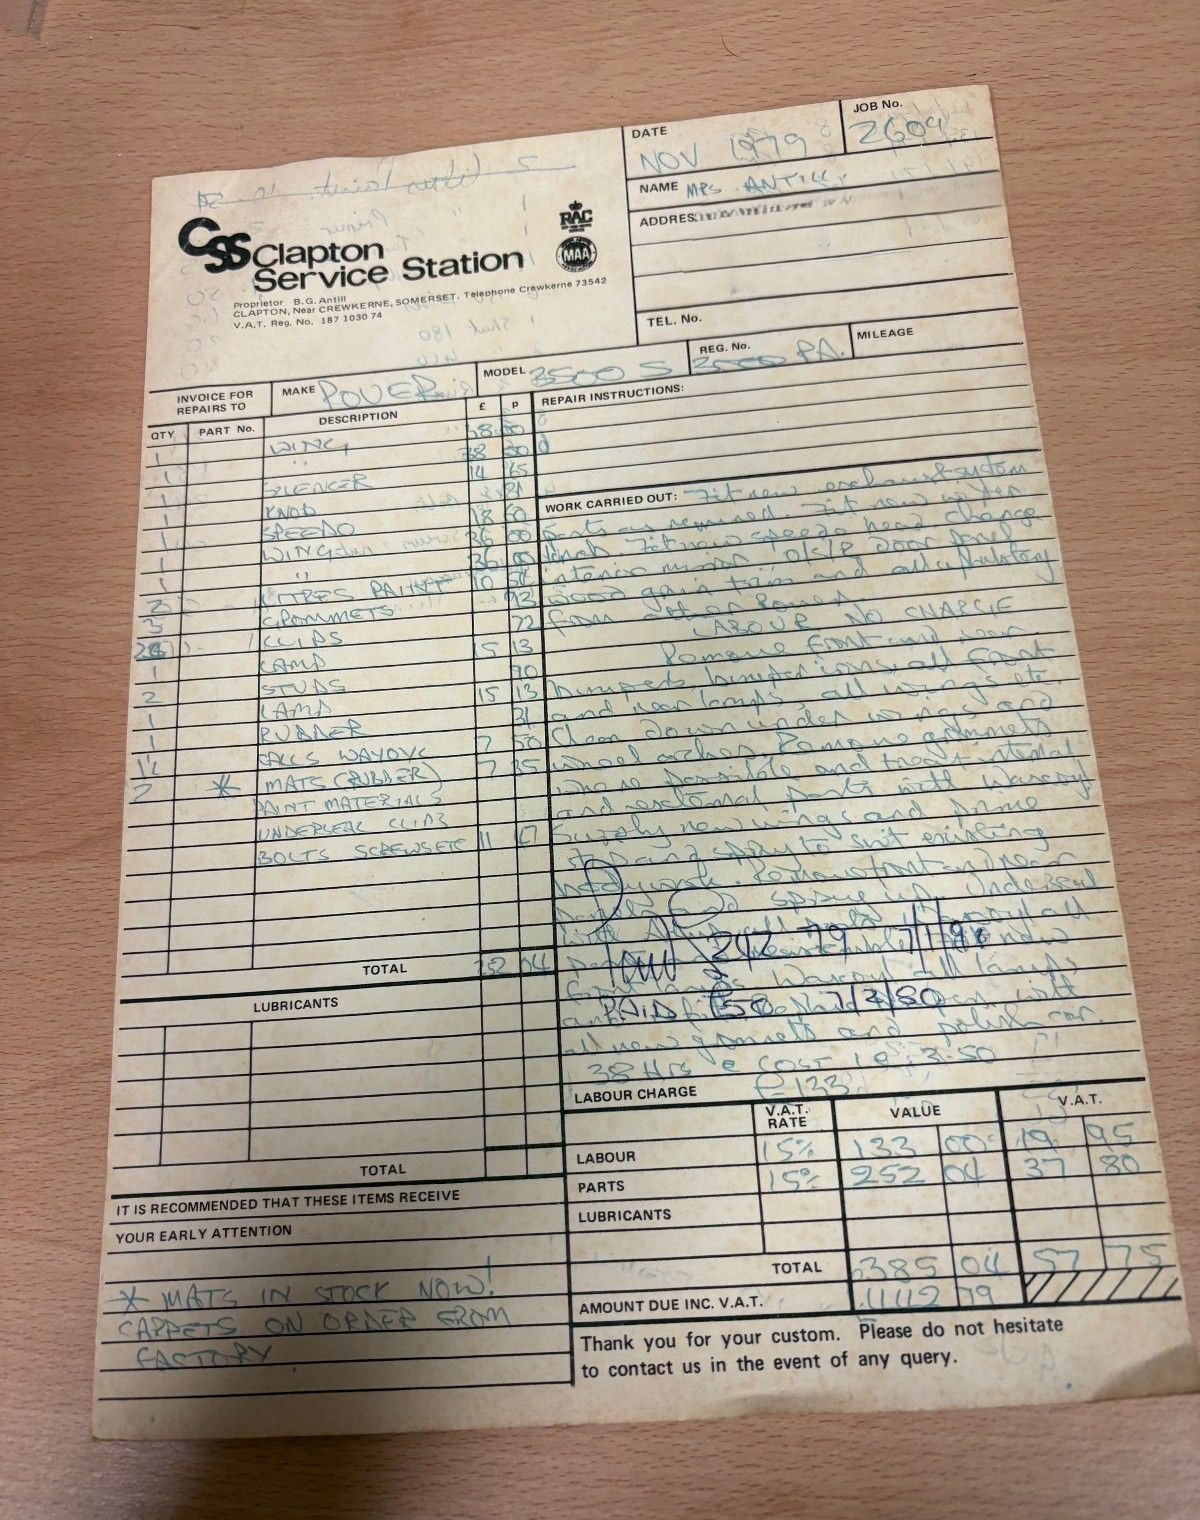 DATE
NOV 1979
JOB No.
2604
NAME MRS ANTILL
ADDRES
TEL. No.
CSS Clapton
Service Station
RAC
MAA
Proprietor B.G. Antill
CLAPTON, Near CREWKERNE, SOMERSET. Telephone Crewkerne 73542
V.A.T. Reg. No. 187 1030 74
INVOICE FOR
REPAIRS TO
MAKE ROVER
MODEL 3500 S
REG. No. PA.
MILEAGE
QTY PART No. DESCRIPTION £ P
1 WING 38 00
1 " 38 00
1 SILENCER 14 65
1 KNOB 31
1 SPEEDO 18 50
1 WING 36 00
1 " 36 00
2 LITRES PAINT 10 54
3 GROMMETS 93
CLIPS 72
1 LAMP 15 13
2 STUDS 90
1 LAMP 15 13
1 RUBBER 31
1½ GALLS WAXOYL 7 50
2 * MATS (RUBBER) 7 35
PAINT MATERIALS
UNDERSEAL CLIPS
BOLTS SCREWS ETC 11 17
TOTAL 252 04
REPAIR INSTRUCTIONS:
WORK CARRIED OUT: Fit new exhaust system
parts as required. Fit new
knob. Fit new speedo head. change
interior mirror, O/S/R Door panel
wood grain trim and all upholstory
from other Rover.
LABOUR NO CHARGE
Remove front and rear
bumpers, bumper irons, all front
and rear lamps, all wings etc.
Clean down under wings and
wheel arches. Remove grommets
where possible and treat internal
and external parts with Waxoyl
Supply new wings and prime
stop and spray to suit existing
bodywork. Remove front and rear
panels and spray up. Underseal
with all
new
Waxoyl all lamps
with
all new grommets and polish car.
38 Hrs @ COST i.e. 3.50
242 79 7/1/
PAID 150 7/2/80
LABOUR CHARGE £133
LUBRICANTS
TOTAL
V.A.T.
RATE VALUE V.A.T.
LABOUR 15% 133 00 19 95
PARTS 15% 252 04 37 80
LUBRICANTS
TOTAL 385 04 57 75
AMOUNT DUE INC. V.A.T. 442 79
IT IS RECOMMENDED THAT THESE ITEMS RECEIVE
YOUR EARLY ATTENTION
* MATS IN STOCK NOW!
CARPETS ON ORDER FROM
FACTORY
Thank you for your custom. Please do not hesitate
to contact us in the event of any query.